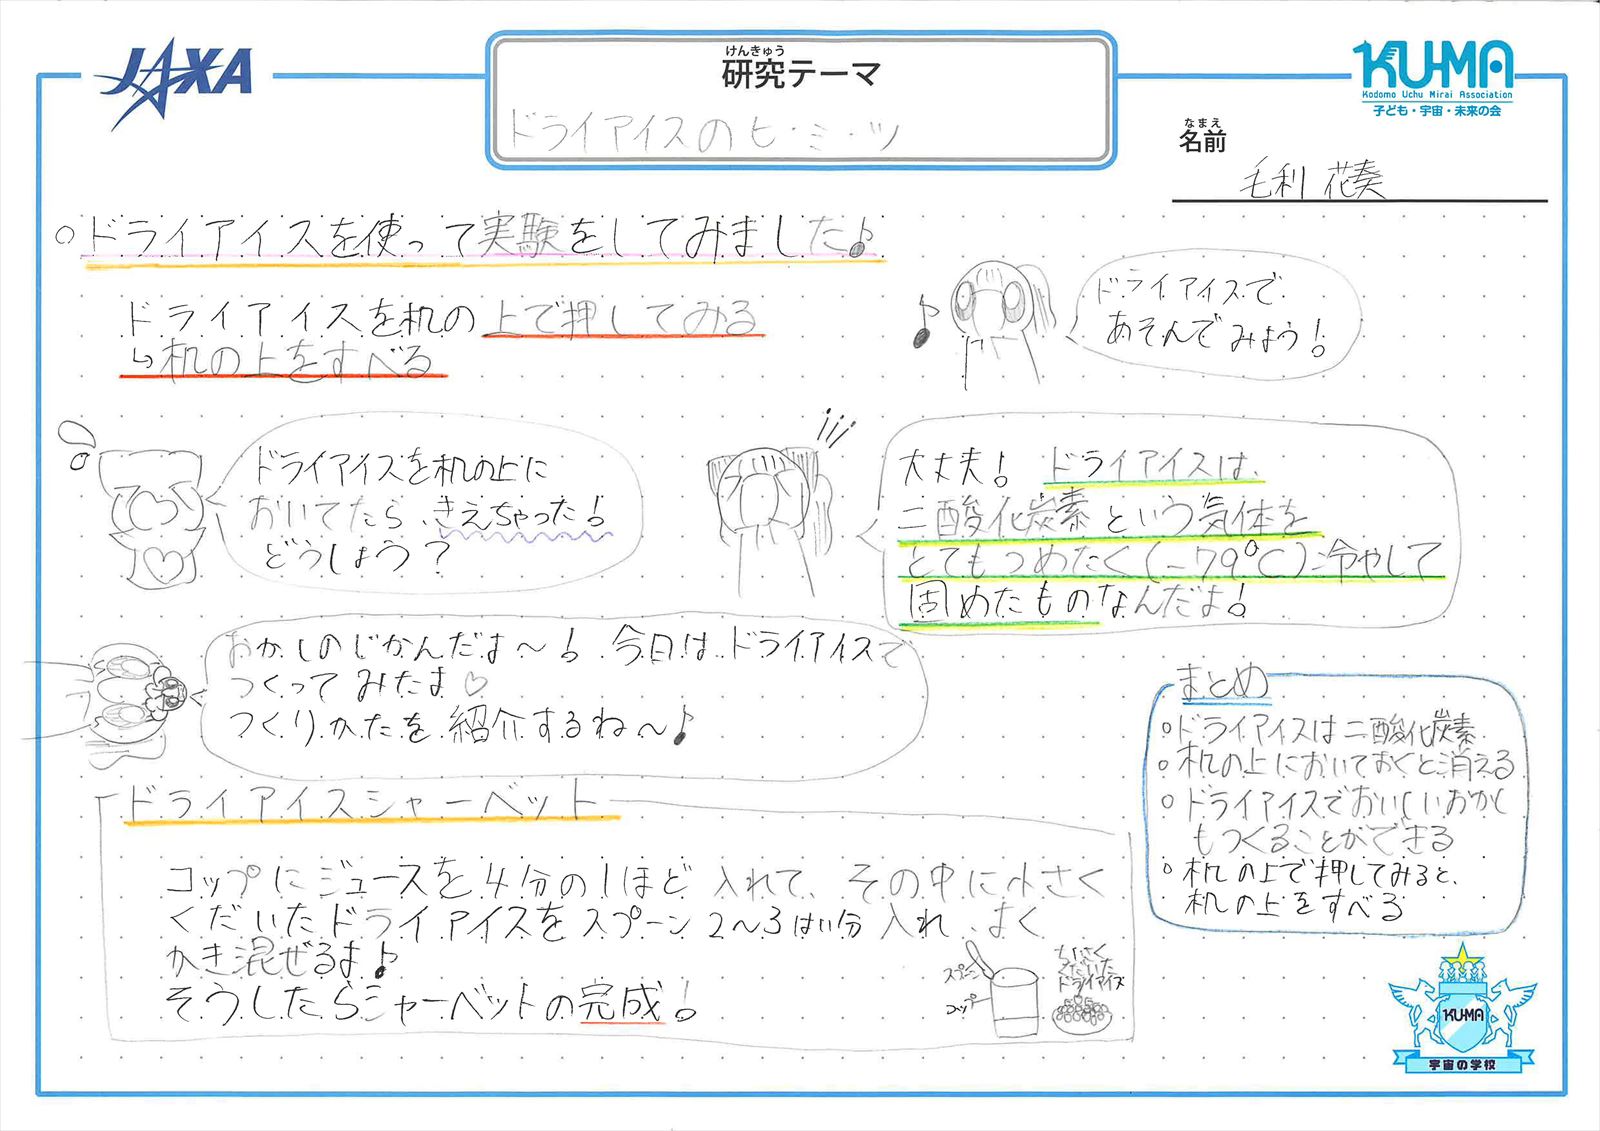 JAXA
けんきゅう
研究テーマ
ドライアイスのヒ・ミ・ツ
KU-MA
Kodomo Uchu Mirai Association
子ども・宇宙・未来の会
なまえ
名前
毛利 花奏
○ドライアイスを使って実験をしてみました♪
ドライアイスを机の上で押してみる
↳机の上をすべる
♪
ドライアイスで
あそんでみよう!
ドライアイスを机の上に
おいてたら、きえちゃった!
どうしよう?
大丈夫! ドライアイスは、
二酸化炭素という気体を
とてもつめたく(-79℃)冷やして
固めたものなんだよ!
おかしのじかんだよ〜! 今日はドライアイスで
つくってみたよ♡
つくりかたを紹介するね〜♪
ドライアイスシャーベット
コップにジュースを4分の1ほど入れて、その中に小さく
くだいたドライアイスをスプーン2〜3はい分入れ、よく
かき混ぜるよ♪
そうしたらシャーベットの完成!
スプーン
コップ
ちいさく
くだいた
ドライアイス
まとめ
○ドライアイスは二酸化炭素
○机の上においておくと消える
○ドライアイスでおいしいおかし
もつくることができる
○机の上で押してみると、
机の上をすべる
KUMA
宇宙の学校